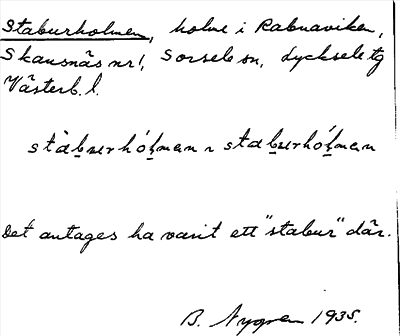 Staburholmen, holme i Rabnaviken,
Skansnäs nr 1, Sorsele sn, Lycksele tg
Västerb. l.
stàburhólman ~ staburhólman
Det antages ha varit ett "stabur" där.
B. Nygren 1935.